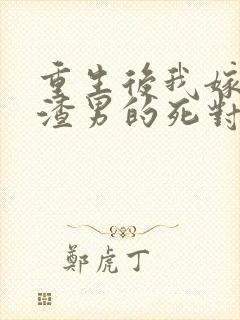 重生後我嫁
渣男的死對
鄭虎丁